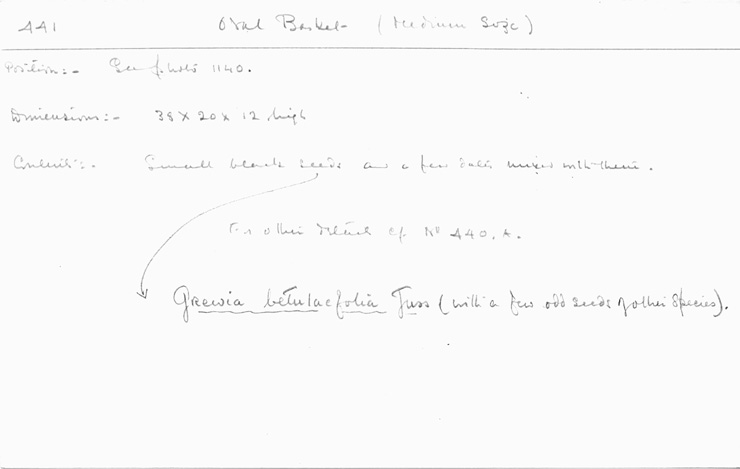 441 Oval Basket (Medium Size)
Position:- See f. notes 1140.
Dimensions:- 38 × 20 × 12 high
Contents:- Small black seeds and a few dates mixed with them.
For other details cf. Nº 440, A.
Grewia betulaefolia Juss (with a few odd seeds of other species).